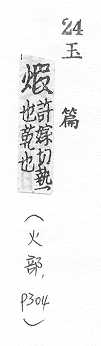 24 玉篇
煆 許嫁切熱
也乾也
(火部, P304)